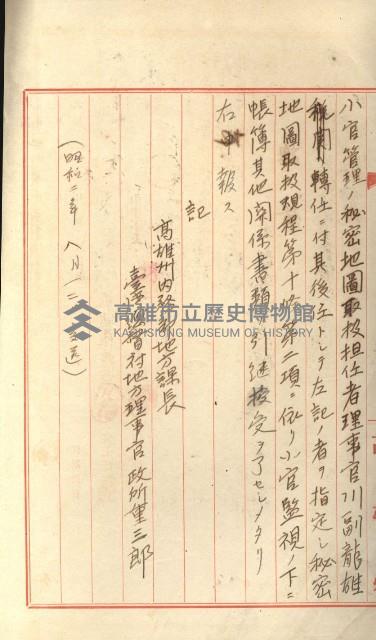 小官管理ノ秘密地圖取扱担任者理事官川副龍雄
轉任ニ付其後任トシテ左記ノ者ヲ指定シ秘密
地圖取扱規程第十條第二項ニ依リ小官監視ノ下ニ
帳簿其他関係書類引継授受ヲ了セシメタリ
右報ス
記
高雄州内務部地方課長
臺灣總督府地方理事官 政所重三郎
(昭和二年 八月一二日 送)
高雄市立歷史博物館
KAOHSIUNG MUSEUM OF HISTORY